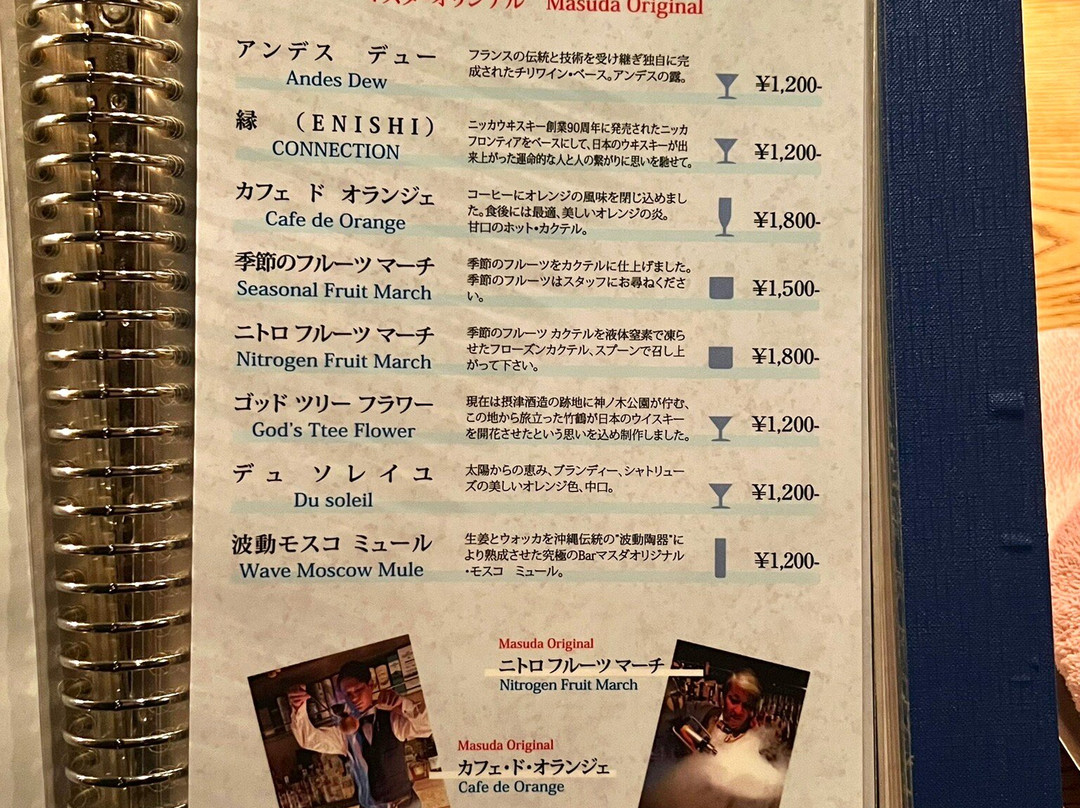 マスダ オリジナル Masuda Original
アンデス デュー
Andes Dew
フランスの伝統と技術を受け継ぎ独自に完
成されたチリワイン・ベース。アンデスの露。
¥1,200-
縁 (ENISHI)
CONNECTION
ニッカウヰスキー創業90周年に発売されたニッカ
フロンティアをベースにして、日本のウヰスキーが出
来上がった運命的な人と人の繋がりに思いを馳せて。
¥1,200-
カフェ ド オランジェ
Cafe de Orange
コーヒーにオレンジの風味を閉じ込めまし
た。食後には最適、美しいオレンジの炎。
甘口のホット・カクテル。
¥1,800-
季節のフルーツ マーチ
Seasonal Fruit March
季節のフルーツをカクテルに仕上げました。
季節のフルーツはスタッフにお尋ねくださ
い。
¥1,500-
ニトロ フルーツ マーチ
Nitrogen Fruit March
季節のフルーツ カクテルを液体窒素で凍ら
せたフローズンカクテル、スプーンで召し上
がって下さい。
¥1,800-
ゴッド ツリー フラワー
God's Ttee Flower
現在は摂津酒造の跡地に神ノ木公園が佇む、
この地から旅立った竹鶴が日本のウイスキー
を開花させたという思いを込め制作しました。
¥1,200-
デュ ソレイユ
Du soleil
太陽からの恵み、ブランディー、シャトリュー
ズの美しいオレンジ色、中口。
¥1,200-
波動モスコ ミュール
Wave Moscow Mule
生姜とウォッカを沖縄伝統の"波動陶器"に
より熟成させた究極のBarマスダオリジナル
・モスコ ミュール。
¥1,200-
Masuda Original
ニトロ フルーツ マーチ
Nitrogen Fruit March
Masuda Original
カフェ・ド・オランジェ
Cafe de Orange